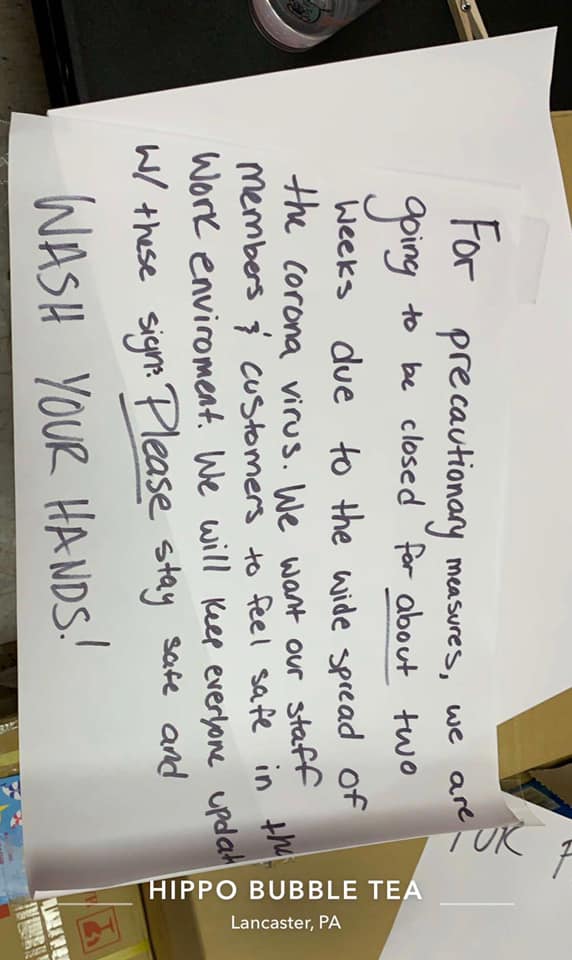 For precautionary measures, we are
going to be closed for about two
weeks due to the wide spread of
the corona virus. We want our staff
members & customers to feel safe in
Work enviroment. We will keep everyone
W/ these signs. Please stay safe and
WASH YOUR HANDS!
HIPPO BUBBLE TEA
Lancaster, PA